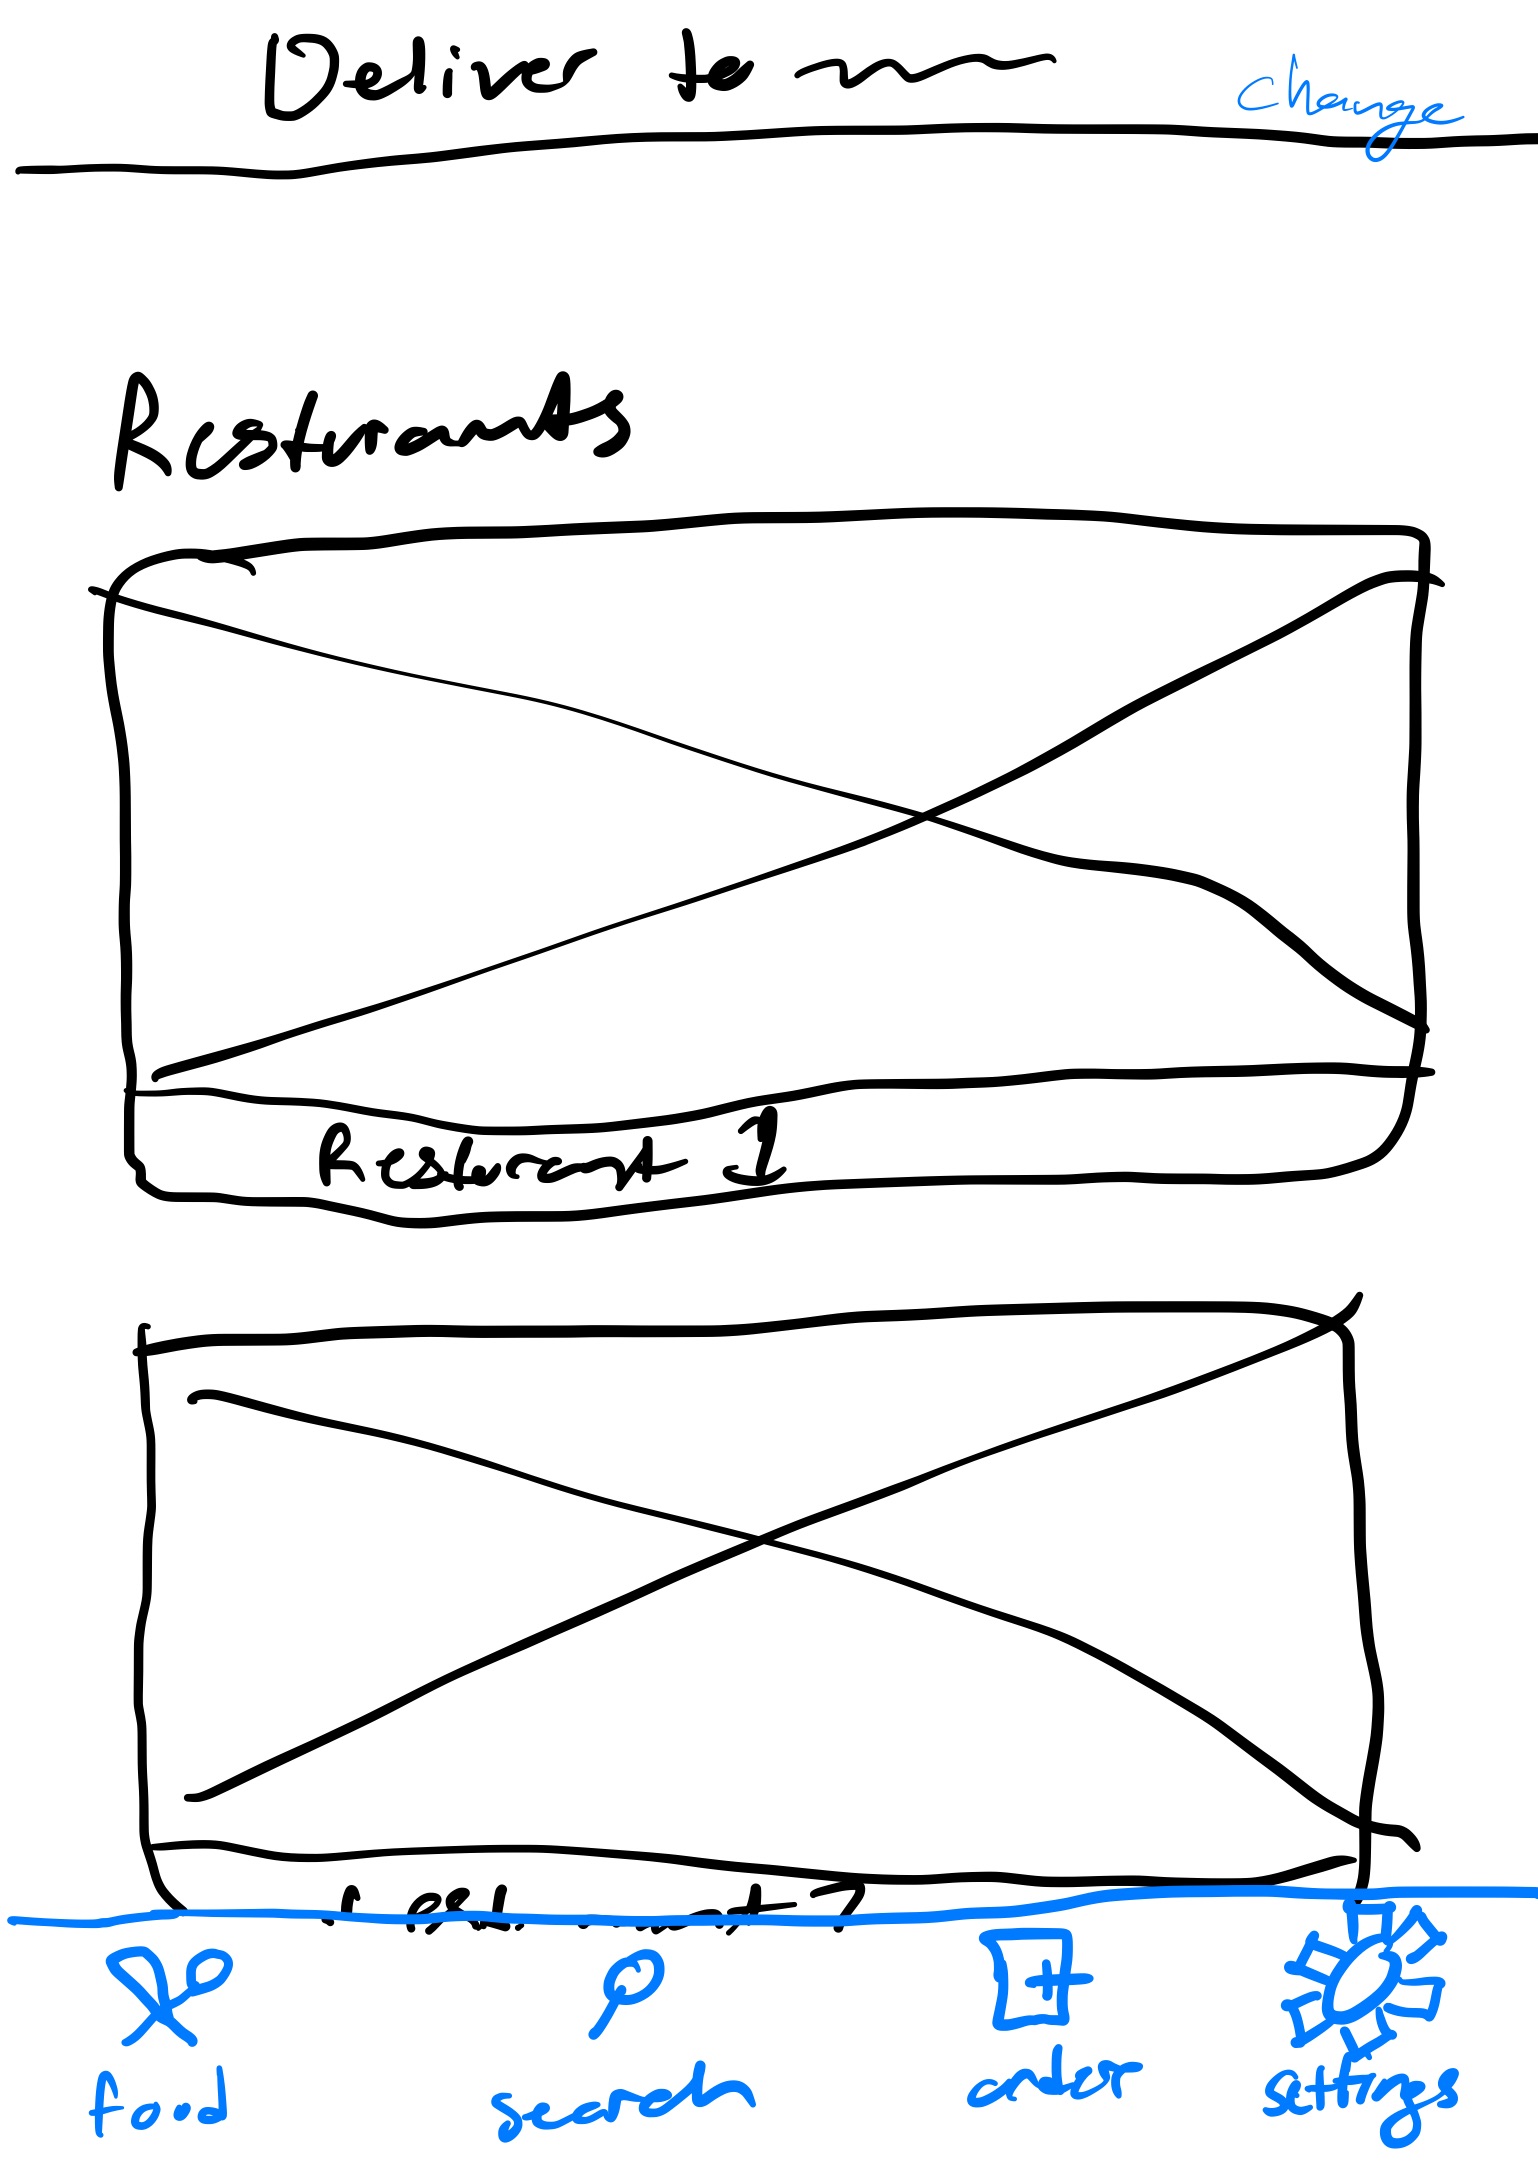 Deliver to
change
Resturants
Resturant 1
food search order settings